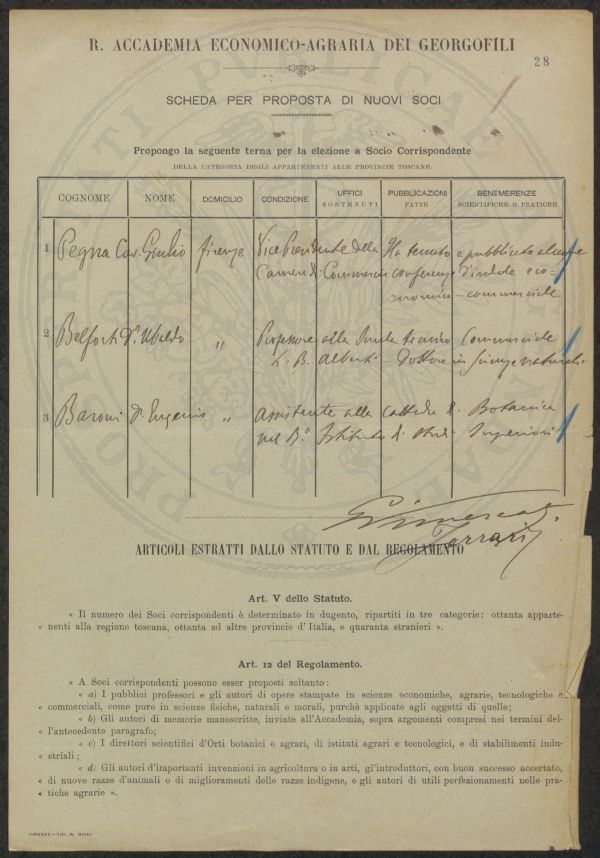 R. ACCADEMIA ECONOMICO-AGRARIA DEI GEORGOFILI
28
SCHEDA PER PROPOSTA DI NUOVI SOCI
Propongo la seguente terna per la elezione a Socio Corrispondente
DELLA CATEGORIA DEGLI APPARTENENTI ALLE PROVINCIE TOSCANE.
COGNOME NOME DOMICILIO CONDIZIONE UFFICI SOSTENUTI PUBBLICAZIONI FATTE BENEMERENZE SCIENTIFICHE O PRATICHE
1 Pegna Cav. Giulio Firenze Vice Presidente della Ha tenuto e pubblicato alcune
Camera di Commercio conferenze d'indole eco=
nomico-commerciale
2 Belforti Dr Ubaldo " Professore alla Scuola tecnica Commerciale
L. B. Alberti - Dottore in scienze naturali
3 Baroni Dr Eugenio " Assistente alla Cattedra di Botanica
nel Ro Istituto di Studi Superiori
Ferrari
ARTICOLI ESTRATTI DALLO STATUTO E DAL REGOLAMENTO
Art. V dello Statuto.
« Il numero dei Soci corrispondenti è determinato in dugento, ripartiti in tre categorie: ottanta apparte-
« nenti alla regione toscana, ottanta ad altre provincie d'Italia, e quaranta stranieri ».
Art. 12 del Regolamento.
« A Soci corrispondenti possono esser proposti soltanto:
« a) I pubblici professori e gli autori di opere stampate in scienze economiche, agrarie, tecnologiche e
« commerciali, come pure in scienze fisiche, naturali e morali, purchè applicate agli oggetti di quelle;
« b) Gli autori di memorie manoscritte, inviate all'Accademia, sopra argomenti compresi nei termini del-
« l'antecedente paragrafo;
« c) I direttori scientifici d'Orti botanici e agrari, di istituti agrari e tecnologici, e di stabilimenti indu-
« striali;
« d) Gli autori d'importanti invenzioni in agricoltura o in arti, gl'introduttori, con buon successo accertato,
« di nuove razze d'animali o di miglioramenti delle razze indigene, e gli autori di utili perfezionamenti nelle pra-
« tiche agrarie ».
FIRENZE-TIP. M. RICCI